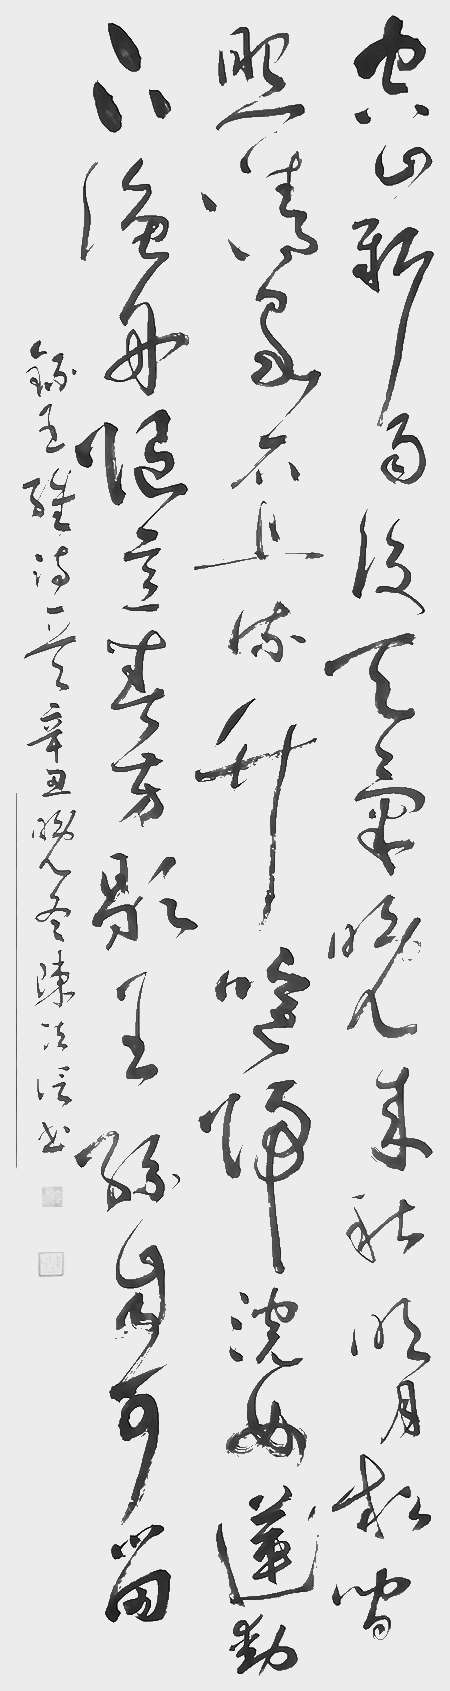 空山新雨後天氣晚來秋明月松間
照清泉石上流竹喧歸浣女蓮動
下漁舟隨意春芳歇王孫自可留
錄王維詩一首辛丑晚冬陳法信書